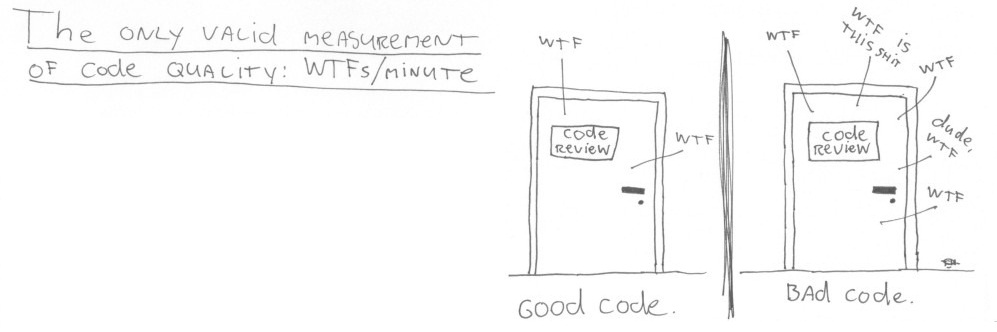 The ONLY VALID MEASUREMENT
OF Code QUALITY: WTFs/MINUTE
WTF
Code
REVIEW
WTF
GOOD CODE.
WTF
WTF IS
THIS SHIT
WTF
Code
REVIEW
dude,
WTF
WTF
BAd CODE.